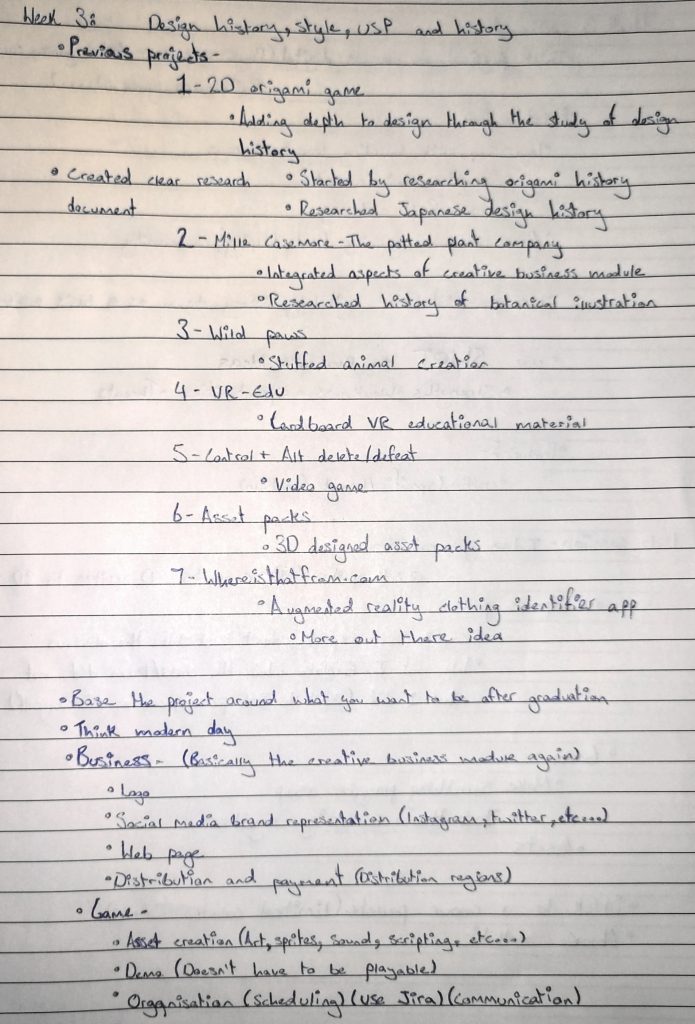 Week 3: Design history, style, USP and history
• Previous projects-
1-2D origami game
• Adding depth to design through the study of design
history
• Created clear research • Started by researching origami history
document • Researched Japanese design history
2 - Mille Casemore - The potted plant company
• Integrated aspects of creative business module
• Researched history of botanical illustration
3 - Wild paws
• Stuffed animal creation
4 - VR-Edu
• Cardboard VR educational material
5 - Control + Alt delete/defeat
• Video game
6 - Asset packs
• 3D designed asset packs
7 - Whereisthatfrom.com
• Augmented reality clothing identifier app
• More out there idea
• Base the project around what you want to be after graduation
• Think modern day
• Business - (Basically the creative business module again)
• Logo
• Social media brand representation (Instagram, twitter, etc...)
• Web page
• Distribution and payment (Distribution regions)
• Game -
• Asset creation (Art, sprites, sound, scripting, etc...)
• Demo (Doesn't have to be playable)
• Orggnisation (Scheduling) (use Jira) (communication)